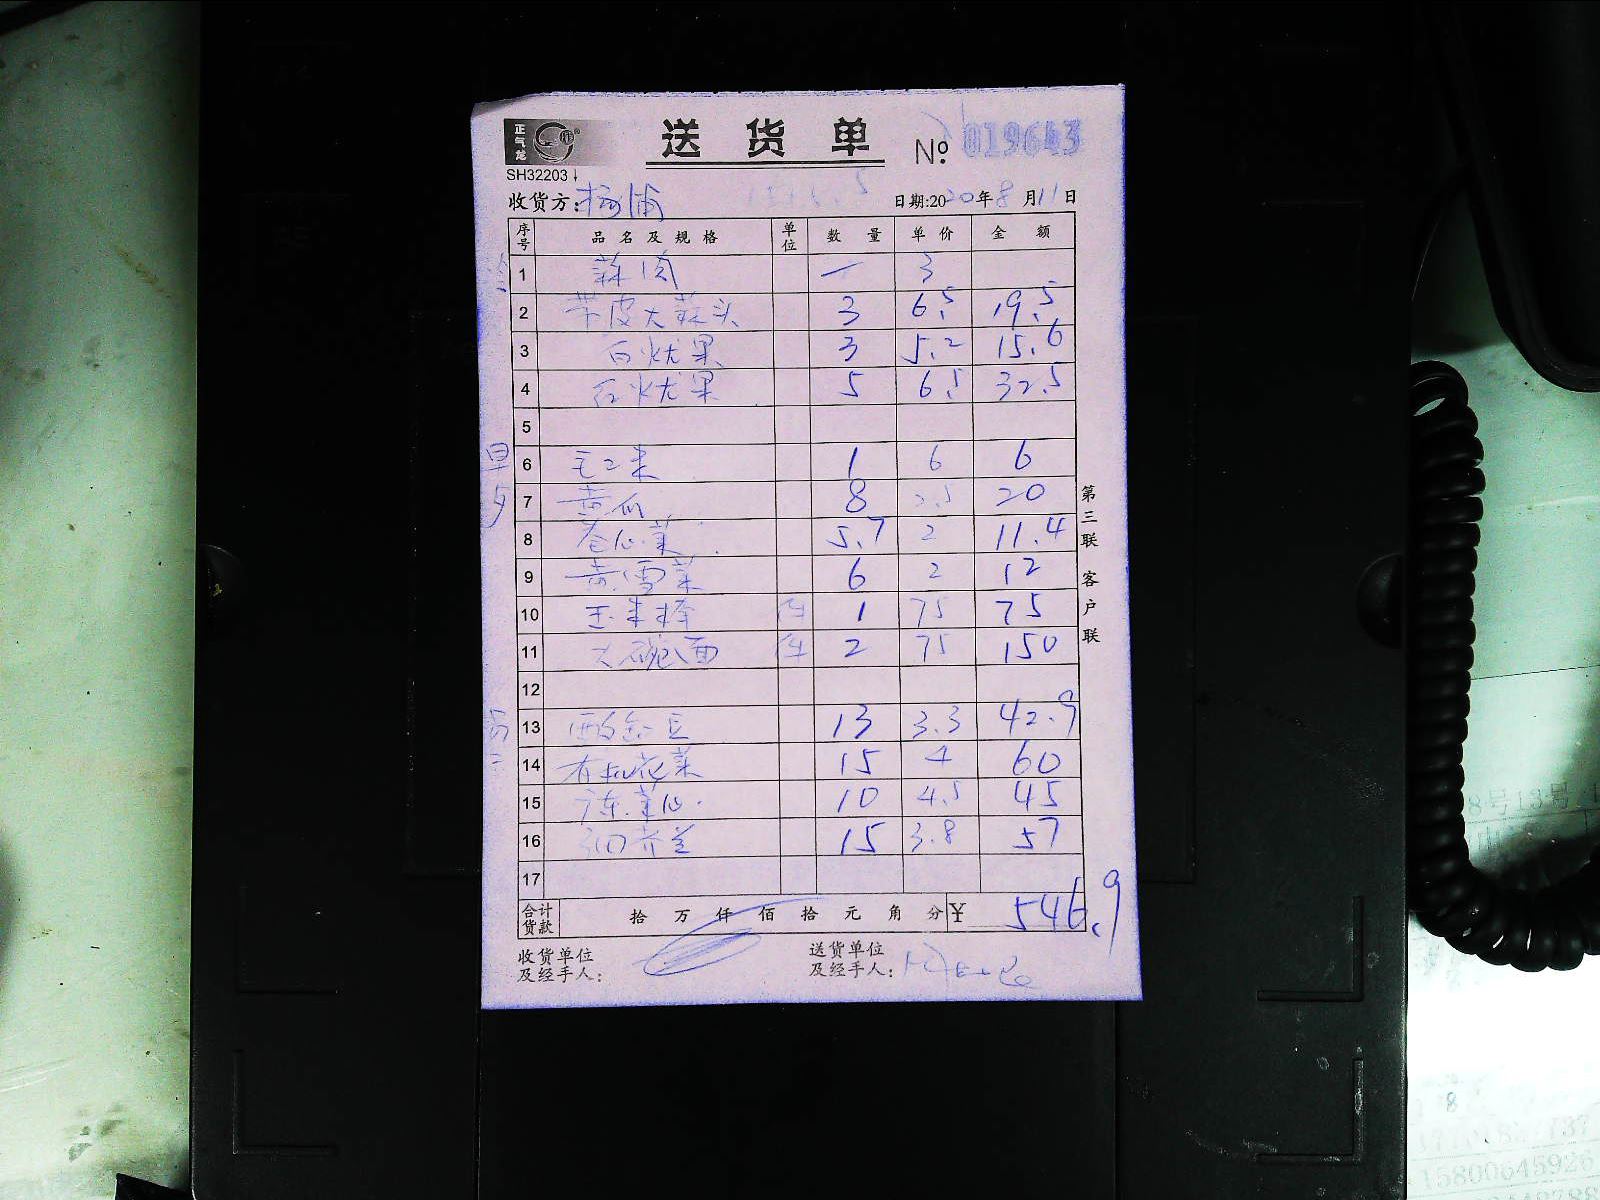 正气龙
送货单 No. 019643
SH32203
收货方: 杨浦 日期:2020年8月11日
序号 品名及规格 单位 数量 单价 金额
1 蒜肉 一 3
2 带皮大蒜头 3 6.5 19.5
3 白火龙果 3 5.2 15.6
4 红火龙果 5 6.5 32.5
5
早夕
6 毛毛菜 1 6 6
7 黄瓜 8 2.5 20
8 卷心菜 5.7 2 11.4
9 黄芽菜 6 2 12
10 玉米棒 件 1 75 75
11 大碗面 件 2 75 150
12
13 13 3.3 42.9
14 有机花菜 15 4 60
15 广东菜心 10 4.5 45
16 芥兰 15 3.8 57
17
合计货款 拾 万 仟 佰 拾 元 角 分 ¥ 546.9
收货单位及经手人:
送货单位及经手人:
第三联 客户联
8号13号
15800645926